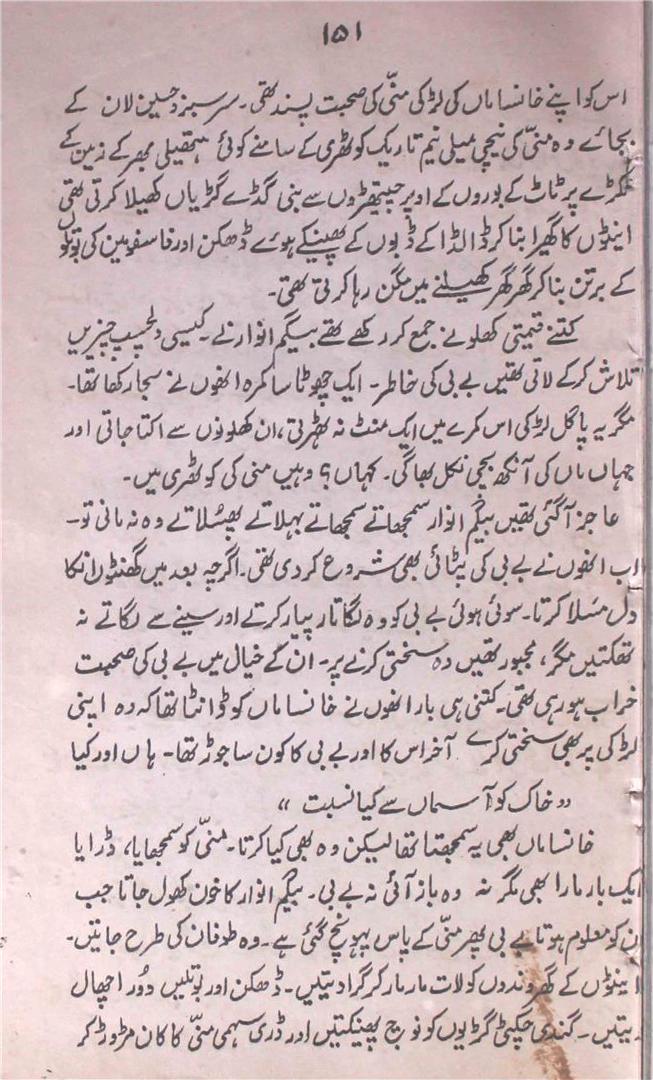 ۱۵۱
اس کو اپنے خانساماں کی لڑکی منّی کی صحبت پسند تھی۔ سرسبز و حسین لان کے
بجائے وہ منّی کی نیچی میلی نیم تاریک کوٹھری کے سامنے کوئی ہتھیلی بھر کے زمین کے
ٹکڑے پر ٹاٹ کے بوروں کے اوپر چیتھڑوں سے بنی گڈے گڑیاں کھیلا کرتی تھی
اینٹوں کا گھیرا بنا کر ڈالڈا کے ڈبوں کے پھینکے ہوئے ڈھکن اور فاسفومین کی بوتلوں
کے برتن بنا کر گھر گھر کھیلنے میں مگن رہا کرتی تھی۔
کتنے قیمتی کھلونے جمع کر رکھے تھے بیگم انوار نے۔ کیسی دلچسپ چیزیں
تلاش کر کے لاتی تھیں بے بی کی خاطر۔ ایک چھوٹا سا کمرہ انھوں نے سجا رکھا تھا۔
مگر یہ پاگل لڑکی اس کمرے میں ایک منٹ نہ ٹھہرتی، ان کھلونوں سے اکتا جاتی اور
جہاں ماں کی آنکھ بچی نکل بھاگی۔ کہاں؟ وہیں منی کی کوٹھری میں۔
عاجز آگئی تھیں بیگم انوار سمجھاتے سمجھاتے بہلاتے پھسلاتے وہ نہ مانی تو۔
اب انھوں نے بے بی کی پٹائی بھی شروع کر دی تھی۔ اگرچہ بعد میں گھنٹوں ان کا
دل مسلا کرتا۔ سوئی ہوئی بے بی کو وہ لگاتار پیار کرتے اور سینے سے لگاتے نہ
تھکتیں مگر، مجبور تھیں وہ سختی کرنے پر۔ ان کے خیال میں بے بی کی صحبت
خراب ہو رہی تھی۔ کتنی ہی بار انھوں نے خانساماں کو ڈانٹا تھا کہ وہ اپنی
لڑکی پر بھی سختی کرے آخر اس کا اور بے بی کا کون سا جوڑ تھا۔ ہاں اور کیا
"خاک کو آسماں سے کیا نسبت"
خانساماں بھی یہ سمجھتا تھا لیکن وہ بھی کیا کرتا۔ منّی کو سمجھایا، ڈرایا
ایک بار مارا بھی مگر نہ وہ باز آئی نہ بے بی۔ بیگم انوار کا خون کھول جاتا جب
ان کو معلوم ہوتا بے بی پھر منّی کے پاس پہونچ گئی ہے۔ وہ طوفان کی طرح جاتیں۔
اینٹوں کے گھروندوں کو لات مار مار کر گرا دیتیں۔ ڈھکن اور بوتلیں دُور اچھال
دیتیں۔ گندی چکٹی گڑیوں کو نوچ پھینکتیں اور ڈری سہمی منّی کا کان مڑوڑ کر